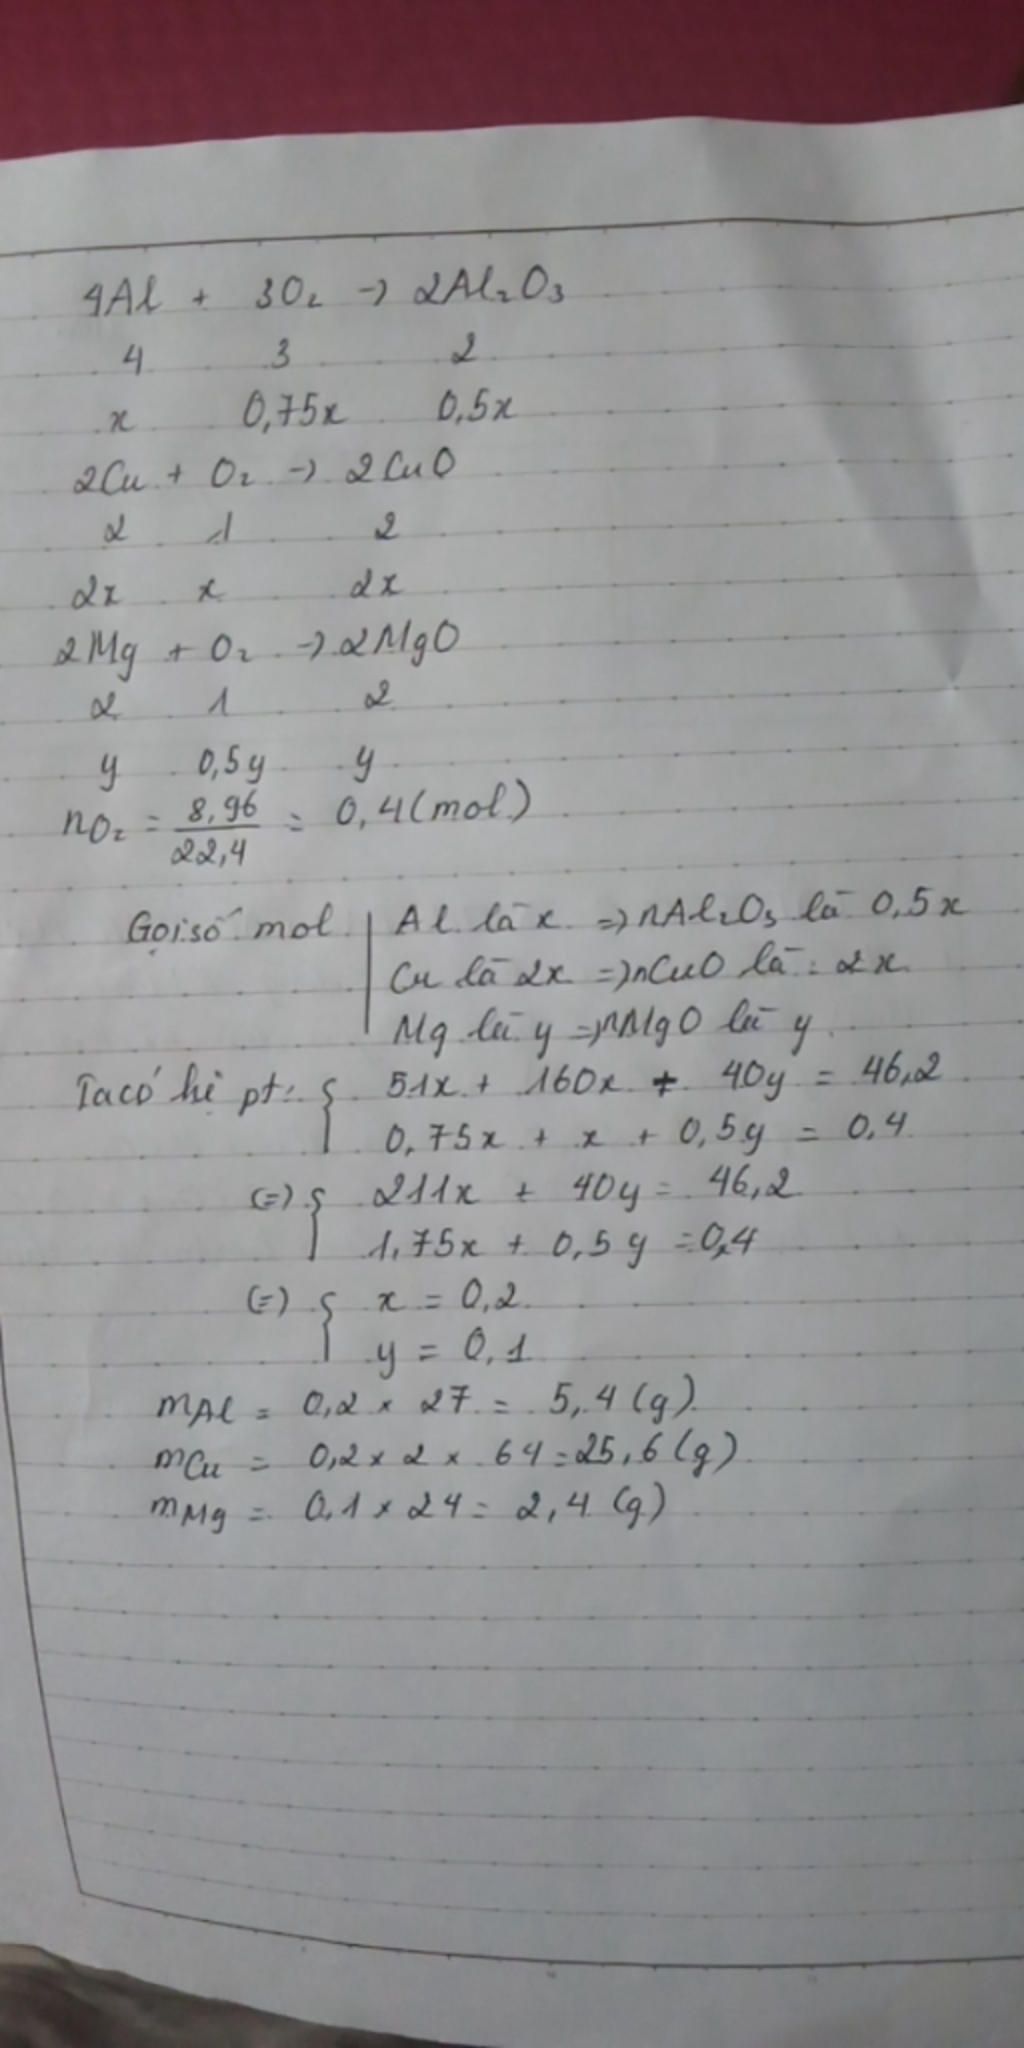 4Al + 3O₂ → 2Al₂O₃
4 3 2
x 0,75x 0,5x
2Cu + O₂ → 2CuO
2 1 2
2x x 2x
2Mg + O₂ → 2MgO
2 1 2
y 0,5y y
nO₂ = 8,96/22,4 = 0,4 (mol)
Gọi số mol | Al là x => nAl₂O₃ là 0,5x
Cu là 2x => nCuO là : 2x
Mg là y => nMgO là y
Ta có hệ pt: { 51x + 160x + 40y = 46,2
0,75x + x + 0,5y = 0,4
(=) { 211x + 40y = 46,2
1,75x + 0,5y = 0,4
(=) { x = 0,2
y = 0,1
mAl = 0,2 × 27 = 5,4 (g)
mCu = 0,2 × 2 × 64 = 25,6 (g)
mMg = 0,1 × 24 = 2,4 (g)